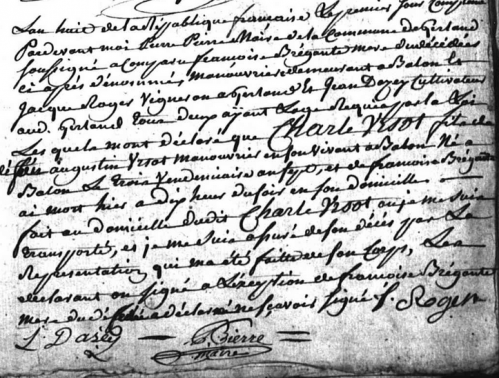 Lan huit de la République française Le premier Jour Complem
Pardevant moi Pierre Maire de la Commune de Gerland
soussigné a Comparu francoise Brégante mere du décédé
ci après dénommé manouvriere demeurant a Balon et
Jacque Roger Vigneron a Gerland Et Jean Cultivateur
aud. Gerland tous deux ayant Lage Requis par la Loi
Les quels mont déclaré que Charle Vrsot fils de
augustin Vrsot manouvrier en son vivant a Balon Né a
Balon Le Trois Vendemiaire an sept, et de francoise Brégante
ai mort hier a dix heures du soir en son domicille
fait au domicille dudit Charle Vrsot ou je me suis
transporté, et je me suis assuré de son décés par La
Représentation qui ma été faitte de son Corps, Les
declarant on signé a Léxeption de francoise Brégante
mere du décédé a déclaré ne scavoir signé J. Roger
Pierre
maire